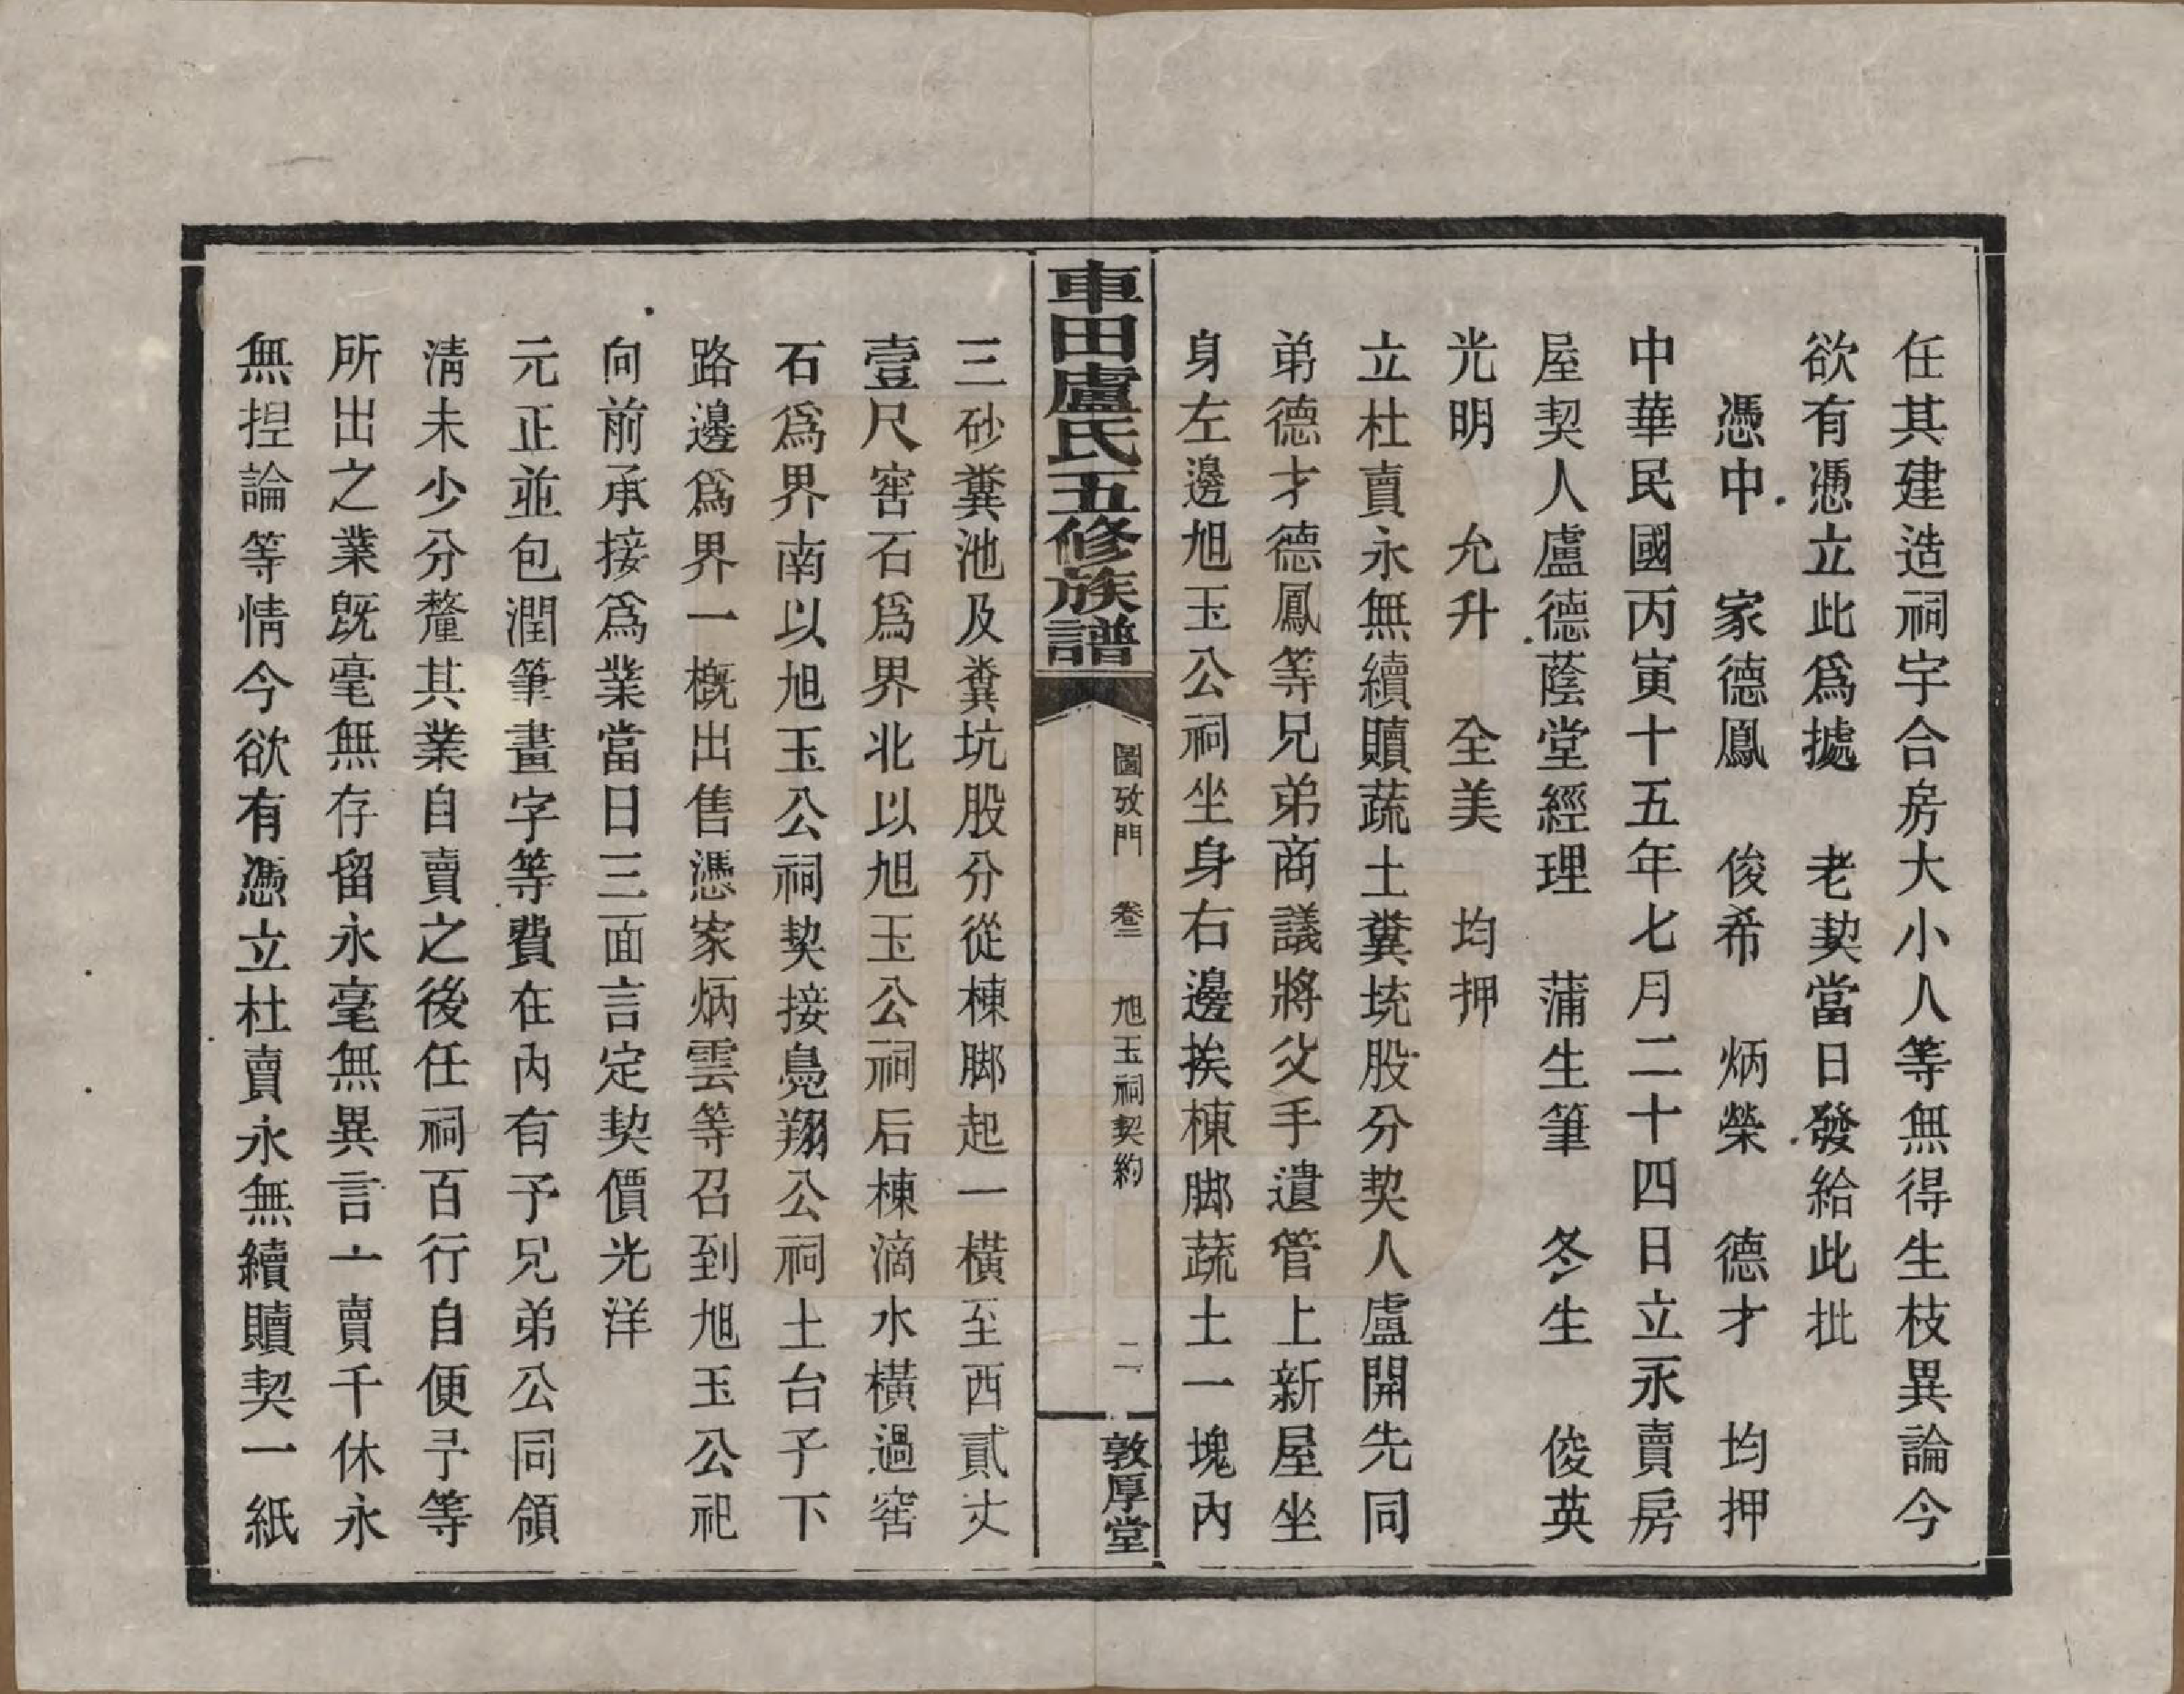 任其建造祠宇合房大小人等無得生枝異論今
欲有憑立此爲據　老契當日發給此批
憑中　家德鳳　俊希　炳榮　德才　均押
中華民國丙寅十五年七月二十四日立永賣房
屋契人盧德蔭堂經理　蒲生筆　冬生　俊英
光明　允升　全美　均押
立杜賣永無續贖蔬土糞坑股分契人盧開先同
弟德才德鳳等兄弟商議將父手遺管上新屋坐
身左邊旭玉公祠坐身右邊挨棟脚蔬土一塊內
車田盧氏五修族譜
圖攷門　卷三　旭玉祠契約
二
敦厚堂
三砂糞池及糞坑股分從棟脚起一橫至西貳丈
壹尺窖石爲界北以旭玉公祠后棟滴水橫過窖
石爲界南以旭玉公祠契接鳧翔公祠土台子下
路邊爲界一概出售憑家炳雲等召到旭玉公祀
向前承接爲業當日三面言定契價光洋
元正並包潤筆畫字等費在內有予兄弟公同領
淸未少分釐其業自賣之後任祠百行自便予等
所出之業旣毫無存留永毫無異言一賣千休永
無揑論等情今欲有憑立杜賣永無續贖契一紙